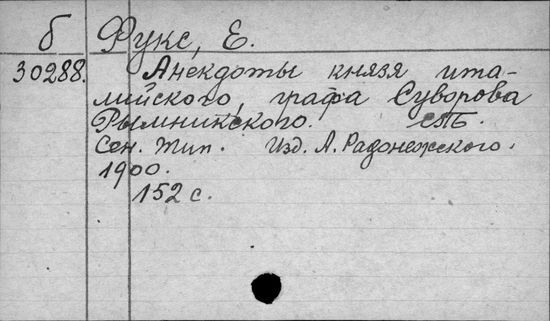 б Фукс, Е.
30288. Анекдоты князя ита-
лийского, графа Суворова
Рымникского. СПБ.
Сен. Тип. Изд. А. Радонежского.
1900.
152 с.